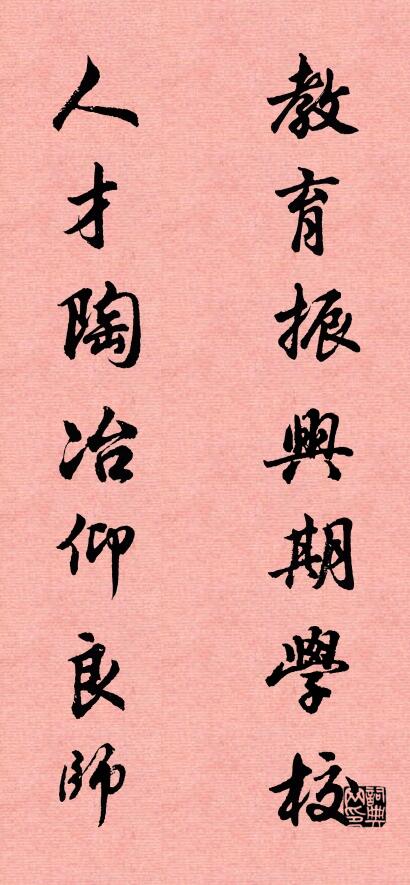 教育振興期學校
人才陶冶仰良師
詞典